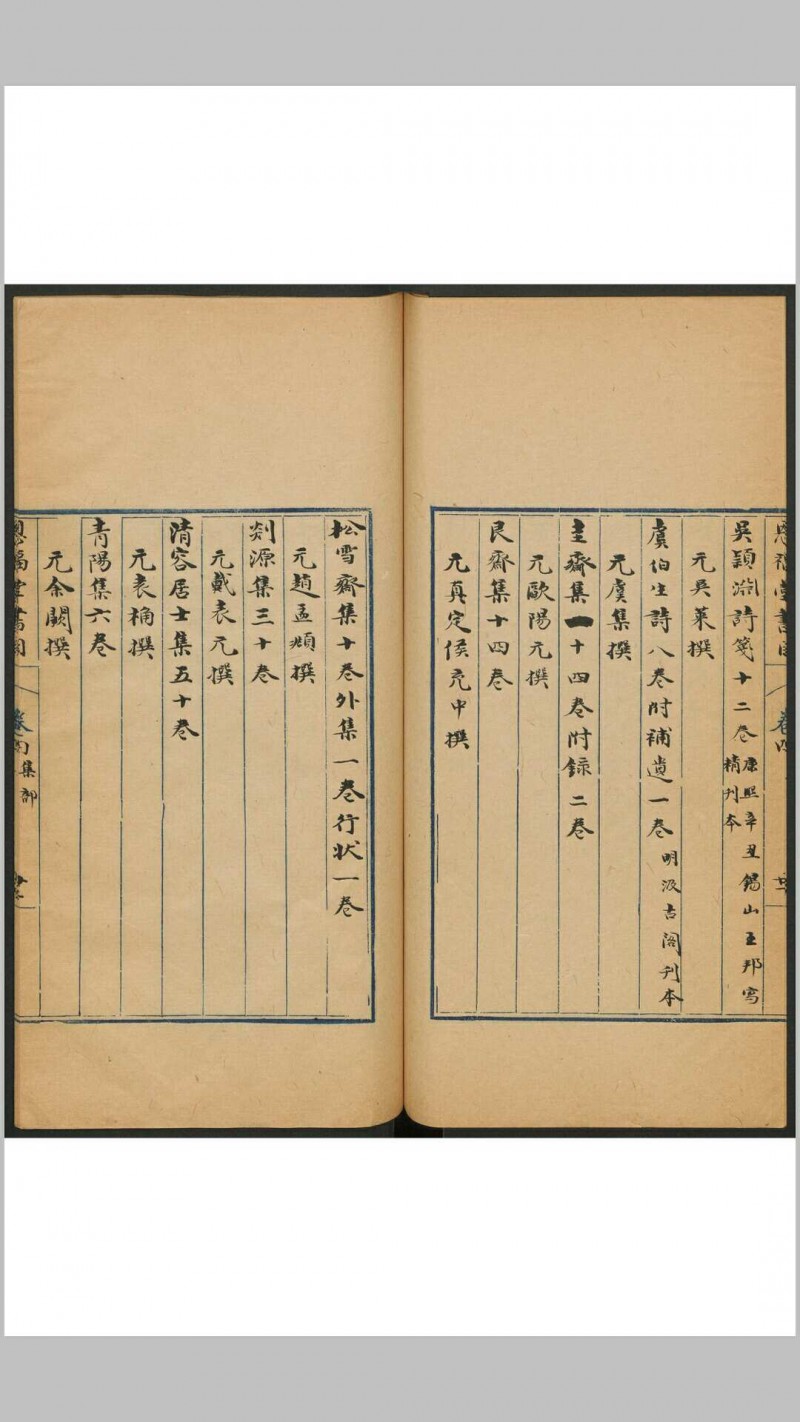 吳潁淵詩箋十二卷 康熙辛丑錫山王邦寀
精刊本
元吳萊撰
虞伯生詩八卷附補遺一卷 明汲古閣刋本
元虞集撰
圭齋集一十四卷附錄二卷
元歐陽元撰
艮齋集十四卷
元真定侯克中撰
松雪齋集十卷外集一卷行狀一卷
元趙孟頫撰
剡源集三十卷
元戴表元撰
清容居士集五十卷
元袁桷撰
青陽集六卷
元余闕撰
恩福堂書目
集部